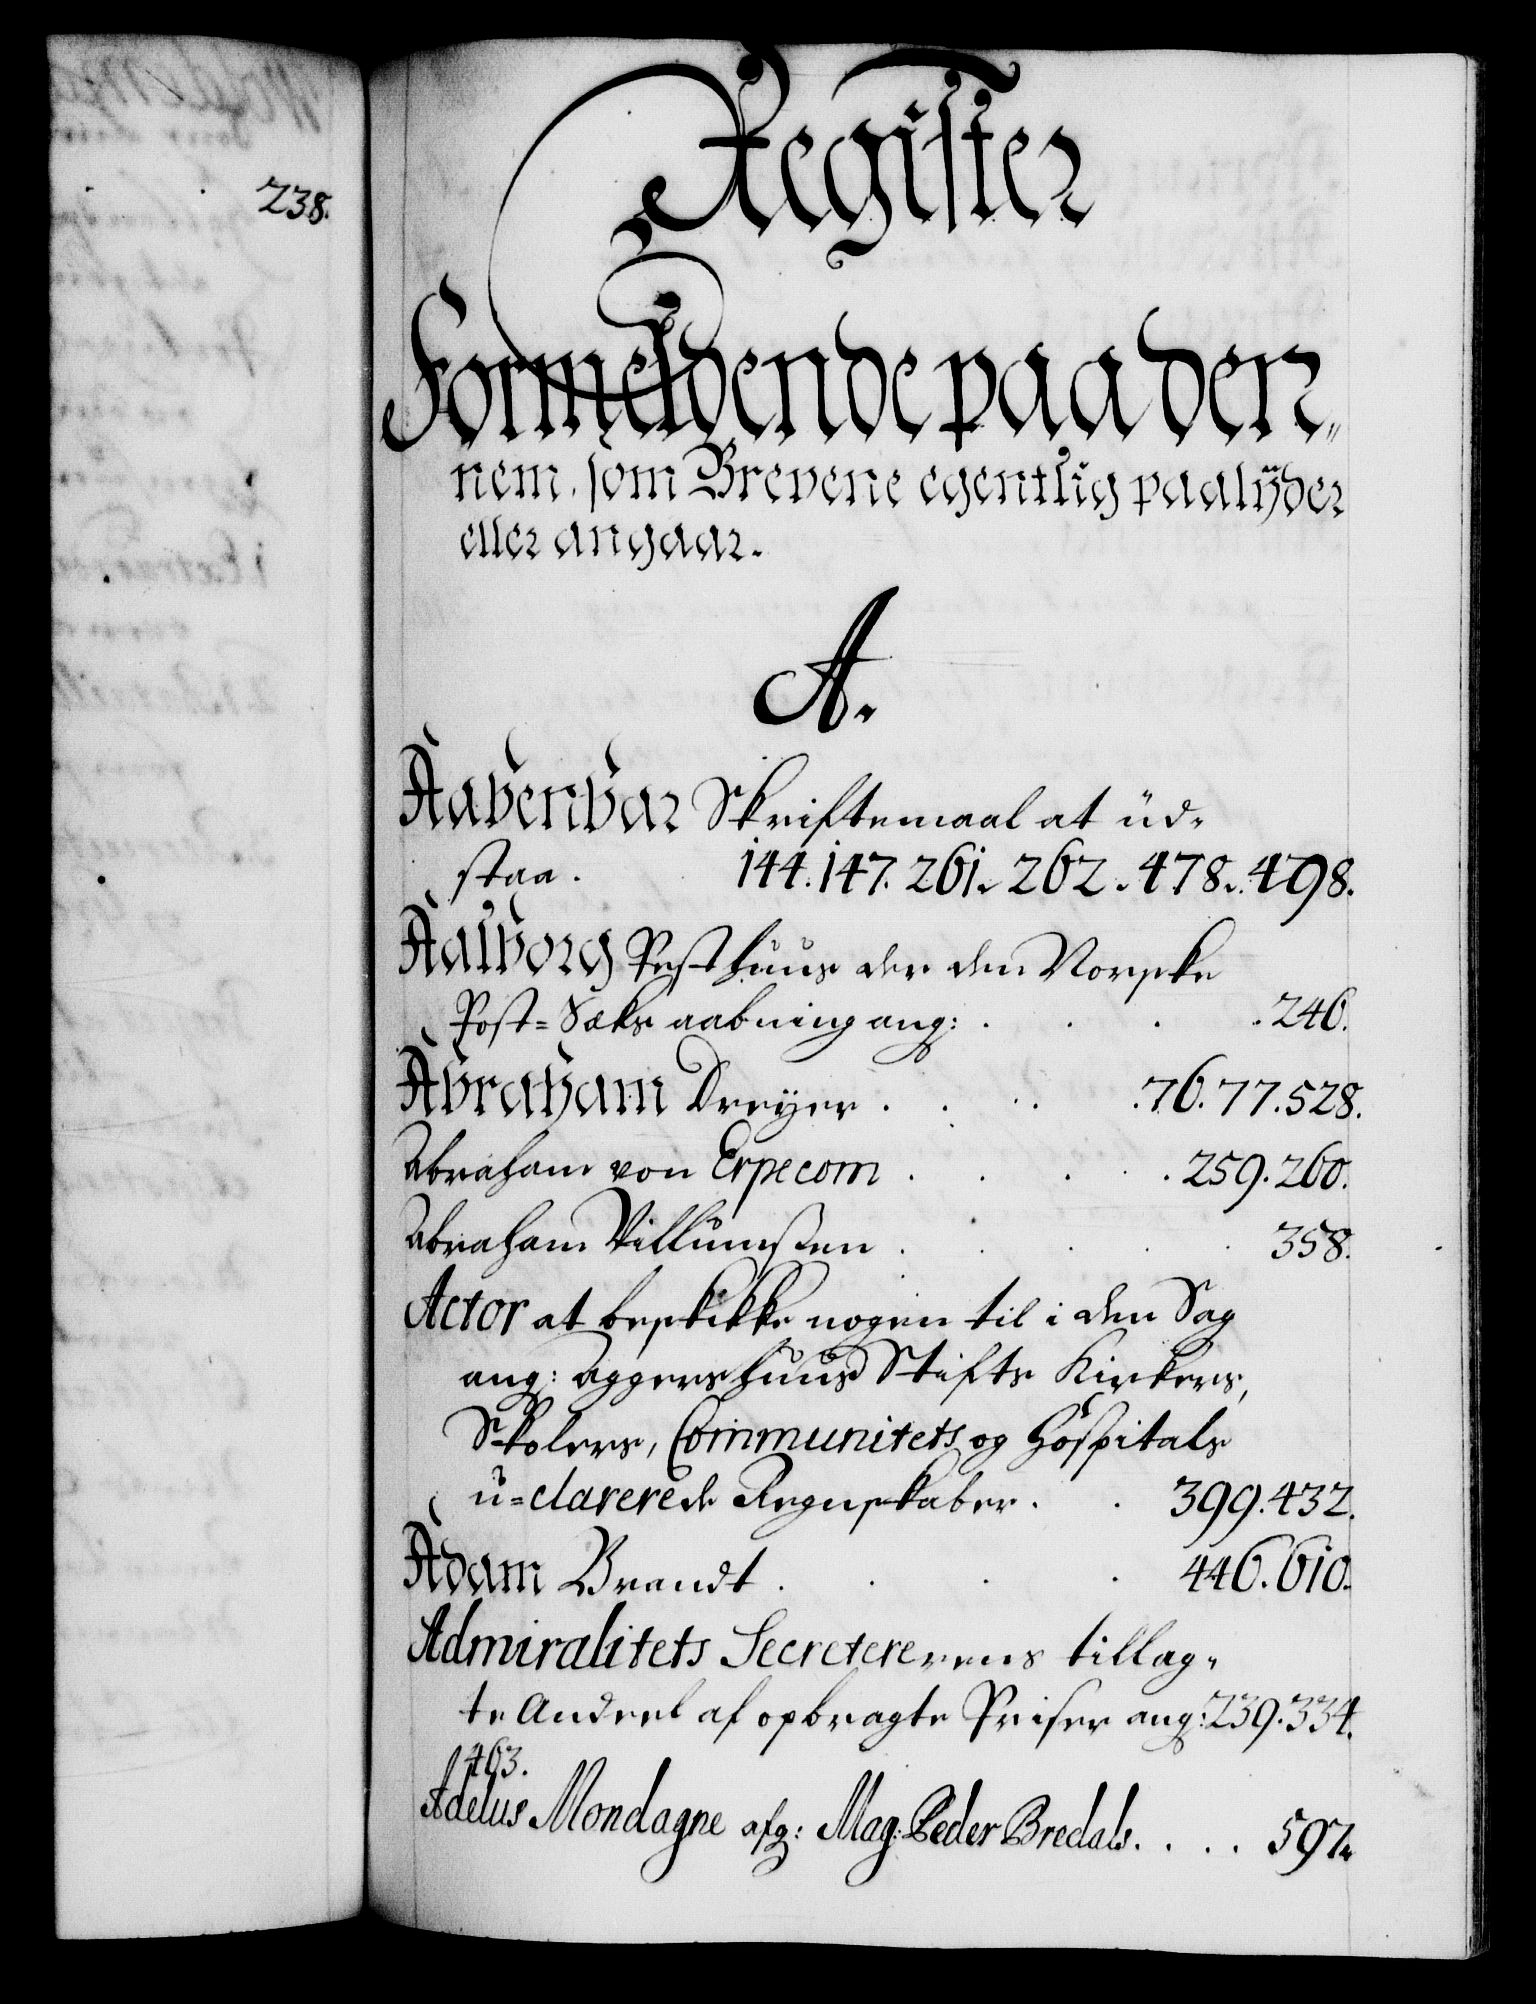 238.
Register
Formeldende paa den,,
nem, som Brevene egentlig paalÿder
eller angaar.
A.
Aabenbar Skriftemaal at üd-
staa. 144. 147. 261. 262. 478. 498.
Aalborg Posthuus der den Norske
Post=Sæks aabning ang: . . . . 246.
Abraham Dreÿer . . . . 76. 77. 528.
Abraham von Erpecom . . . . 259. 260.
Abraham Villumsen . . . . . 358.
Actor at beskikke nogen til i den Sag
ang: Aggershuus Stifts Kirkers,
Skolers, Communitets og Hospitals
u=clarerede Regnskaber . . 399. 432.
Adam Brandt . . . . 446. 610.
Admiralitets Secreterens tillag-
te Andeel af opbragte Priser ang: 239. 334.
463.
Adelus Mondagne afg: Mag: Peder Bredals . . . . 597.